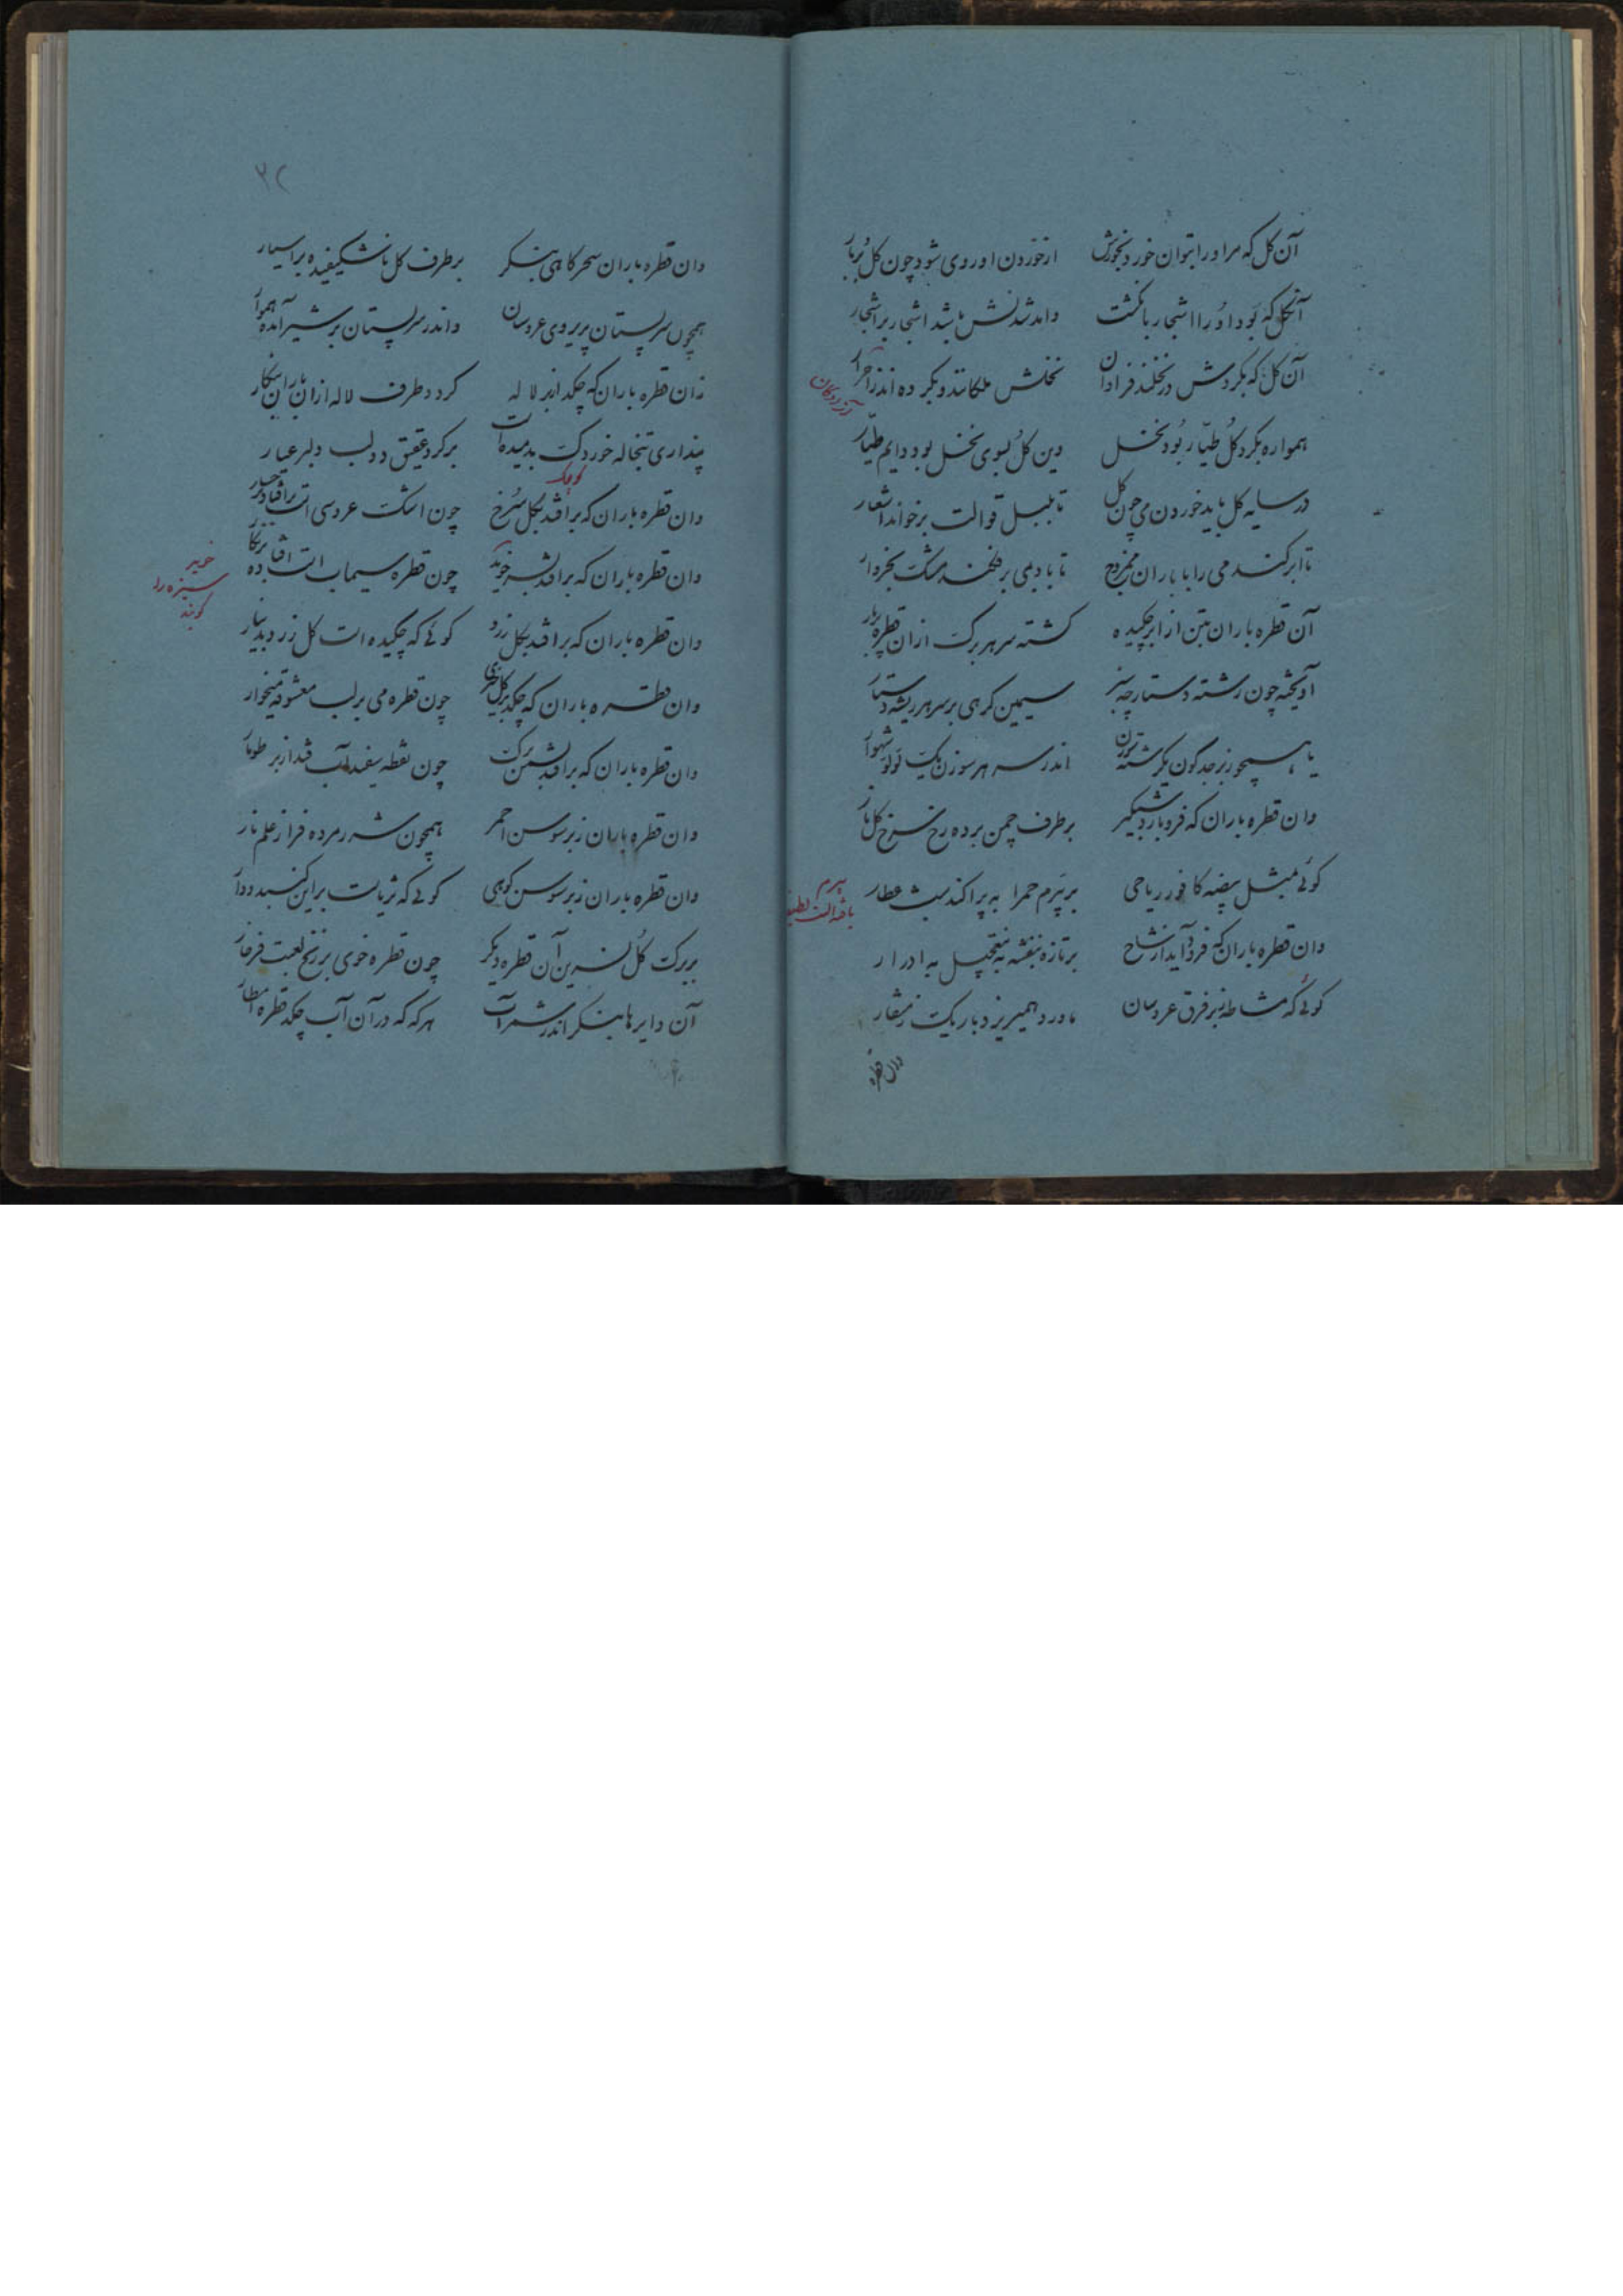 آن کل که مر او را بتوان خورد بخوشی از خوردن او روی شود چون کل بربار
آنکل که بود او را اشجار بانگشت وامد شدنش باشد اشجار بر اشجار
آن کل که بکردش در نحلند فراوان نحلش ملکانند و بکرد اندر احرار
آزردکان
همواره بکرد کل طیار بود نحل وین کل بسوی نحل بود دایم طیار
در سایه کل باید خوردن می چون کل تا بلبل قوالت برخواند اشعار
تا ابر کند می را با باران ممزوج تا باد بمی برفکند مشک بخروار
آن قطره باران بین از ابر چکیده کشته سر هر برک از آن قطره پربار
آویخته چون رشته دستارچه سبز سیمین کرهی بر سر هر ریشه دستار
یا همچو زبرجد کون یکرشته سوزن اندر سر هر سوزن یک لولو شهوار
وان قطره باران که فرو بارد شبکیر بر طرف چمن بر دو رخ سرخ کل نار
کوئی بمثل بیضه کافور ریاحی بر بیرم حمرا به پراکندست عطار
بیرم بافته است لطیف
وان قطره باران که فرود آید از شاخ بر تازه بنفشه نه بتعجیل به ادرار
کوئی که مشاطه ز بر فرق عروسان ماورد همیریزد باریک ز منقار
وان قطره
۳۲
وان قطره باران سحرکاهی بنکر بر طرف کل ناشکفیده بر اسیار
همچون سر پستان پریروی عروسان واندر سر پستان بر شیر آمده هموار
زان قطره باران که چکد از بر لاله کردد طرف لاله از آن باران بنکار
پنداری تبخاله خوردک بدمیده است بر کرد عقیق دو لب دلبر عیار
کوچک
وان قطره باران که بر افتد بکل سرخ چون اشک عروسی است بر افتاده برخسار
وان قطره باران که بر افتد بسر خوید چون قطره سیماب است افتاده بزنکار
خوید سبزه را کویند
وان قطره باران که بر افتد بکل زرد کوئی که چکیده است کل زر بدینار
وان قطره باران که چکد بر کل خیری چون قطره می بر لب معشوقه میخوار
وان قطره باران که بر افتد بسمن برک چون نقطه سفیداب فتد از بر طومار
وان قطره باران ز بر سوسن احمر همچون شرر مرده فراز علم نار
وان قطره باران ز بر سوسن کوهی کوئی که ثریاست براین کنبد دوار
بر برک کل نسرین آن قطره دیکر چون قطره خوی بر زنخ لعبت فرخار
آن دایرها بنکر اندر شمر آب هر که که در آن آب چکد قطره امطار